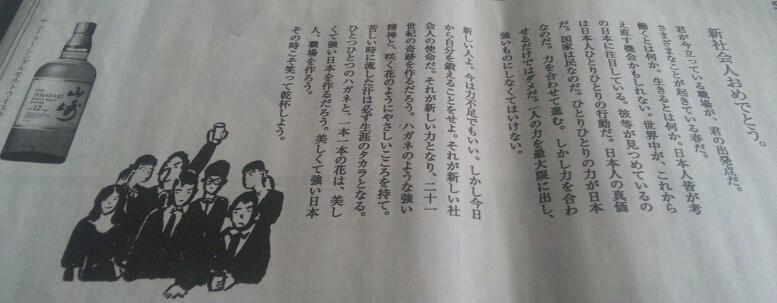 新社会人おめでとう。
君が今立っている職場が、君の出発点だ。
さまざまなことが起きている春だ。
働くとは何か。生きるとは何か。日本人皆が考
え直す機会かもしれない。世界中が、これから
の日本に注目している。彼等が見つめているの
は日本人ひとりひとりの行動だ。日本人の真価
だ。国家は民なのだ。ひとりひとりの力が日本
なのだ。力を合わせて進む。しかし力を合わ
せるだけではダメだ。一人の力を最大限に出し、
強いものにしなくてはいけない。
新しい人よ。今は力不足でもいい。しかし今日
から自分を鍛えることをせよ。それが新しい社
会人の使命だ。それが新しい力となり、二十一
世紀の奇跡を作るだろう。ハガネのような強い
精神と、咲く花のようにやさしいこころを持て。
苦しい時に流した汗は必ず生涯のタカラとなる。
ひとつひとつのハガネと、一本一本の花は、美し
くて強い日本を作るだろう。美しくて強い日本
人、職場を作ろう。
その時こそ笑って乾杯しよう。
サントリーシングルモルトウイスキー
山崎
THE
YAMAZAKI
12